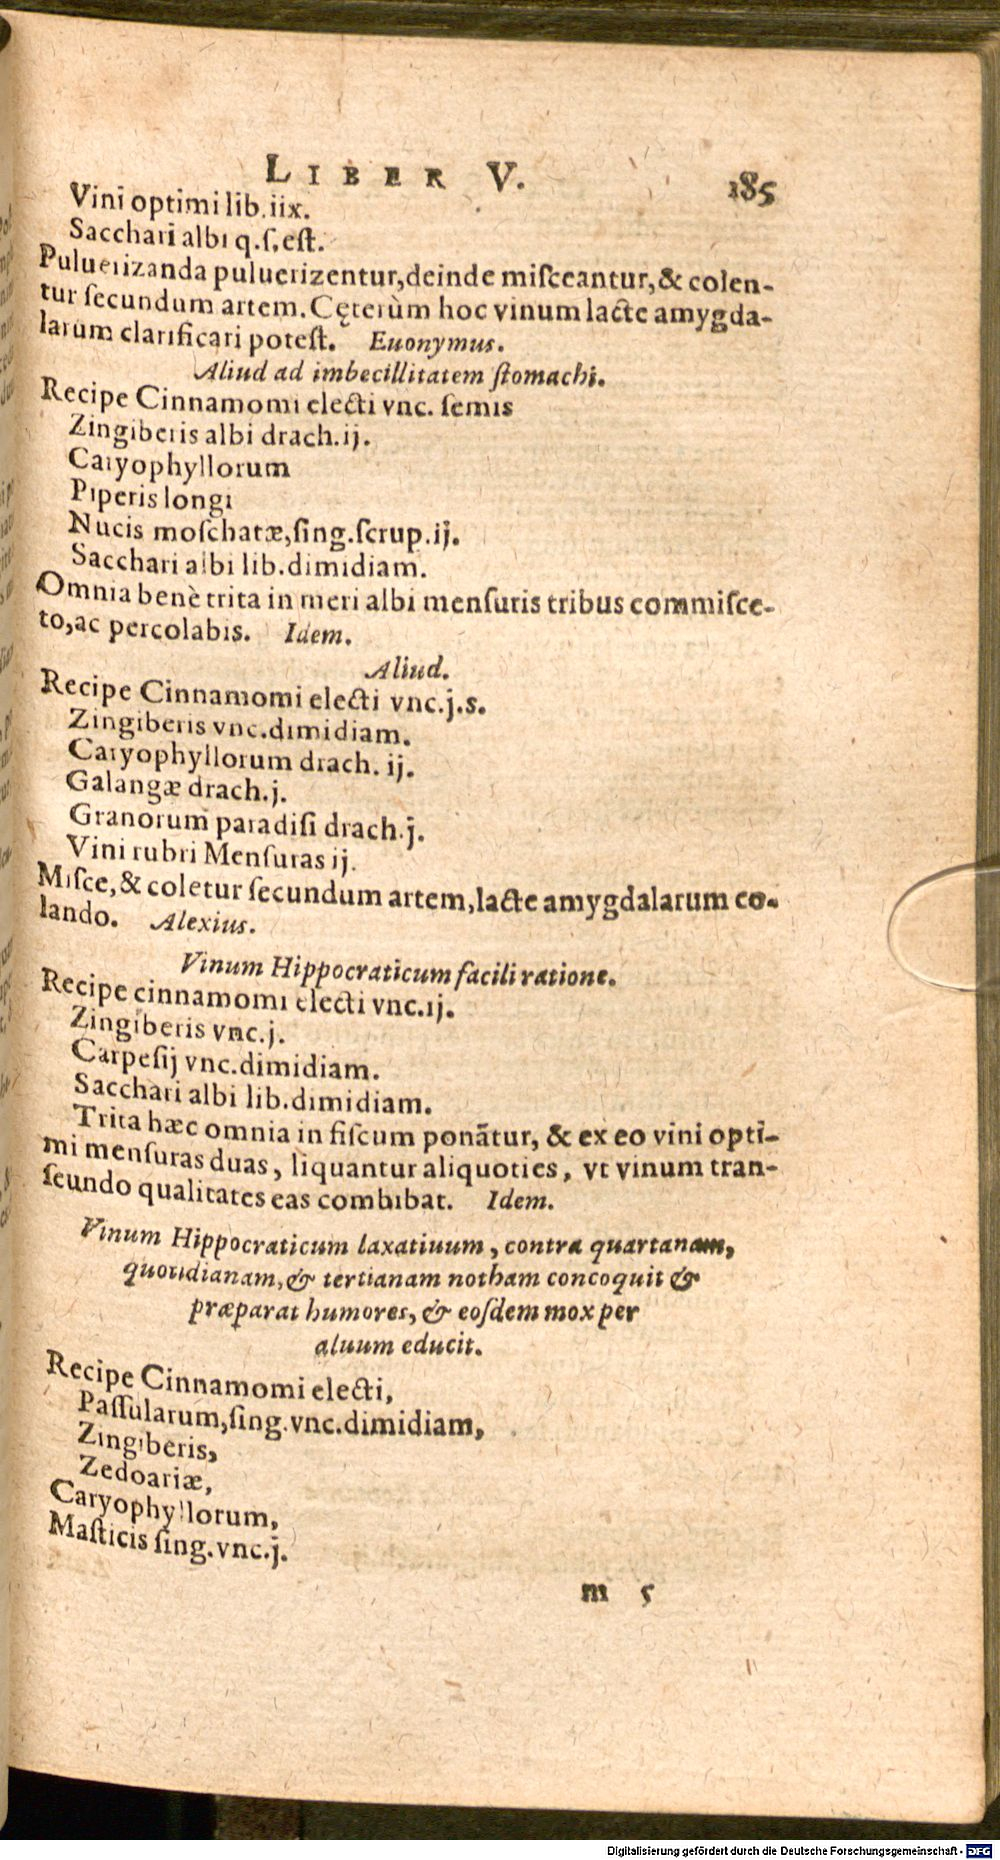 LIBER V. 185
Vini optimi lib.iix.
Sacchari albi q.ſ,eſt.
Puluerizanda puluerizentur,deinde miſceantur,& colen-
tur ſecundum artem. Cęterùm hoc vinum lacte amygda-
larum clarificari poteſt. Euonymus.
Aliud ad imbecillitatem ſtomachi.
Recipe Cinnamomi electi vnc. ſemis
Zingiberis albi drach.ij.
Caryophyllorum
Piperis longi
Nucis moſchatæ,ſing.ſcrup.ij.
Sacchari albi lib.dimidiam.
Omnia benè trita in meri albi menſuris tribus commiſce-
to,ac percolabis. Idem.
Aliud.
Recipe Cinnamomi electi vnc.j.s.
Zingiberis vnc.dimidiam.
Caryophyllorum drach. ij.
Galangæ drach.j.
Granorum paradiſi drach.j.
Vini rubri Menſuras ij.
Miſce,& coletur ſecundum artem,lacte amygdalarum co-
lando. Alexius.
Vinum Hippocraticum facili ratione.
Recipe cinnamomi electi vnc.ij.
Zingiberis vnc.j.
Carpeſij vnc.dimidiam.
Sacchari albi lib.dimidiam.
Trita hæc omnia in fiſcum ponãtur, & ex eo vini opti-
mi menſuras duas, liquantur aliquoties, vt vinum tran-
ſeundo qualitates eas combibat. Idem.
Vinum Hippocraticum laxatiuum, contra quartanam,
quotidianam,& tertianam notham concoquit &
præparat humores, & eoſdem mox per
aluum educit.
Recipe Cinnamomi electi,
Paſſularum,ſing.vnc.dimidiam,
Zingiberis,
Zedoariæ,
Caryophyllorum,
Maſticis ſing.vnc.j.
m 5
Digitalisierung gefördert durch die Deutsche Forschungsgemeinschaft - DFG